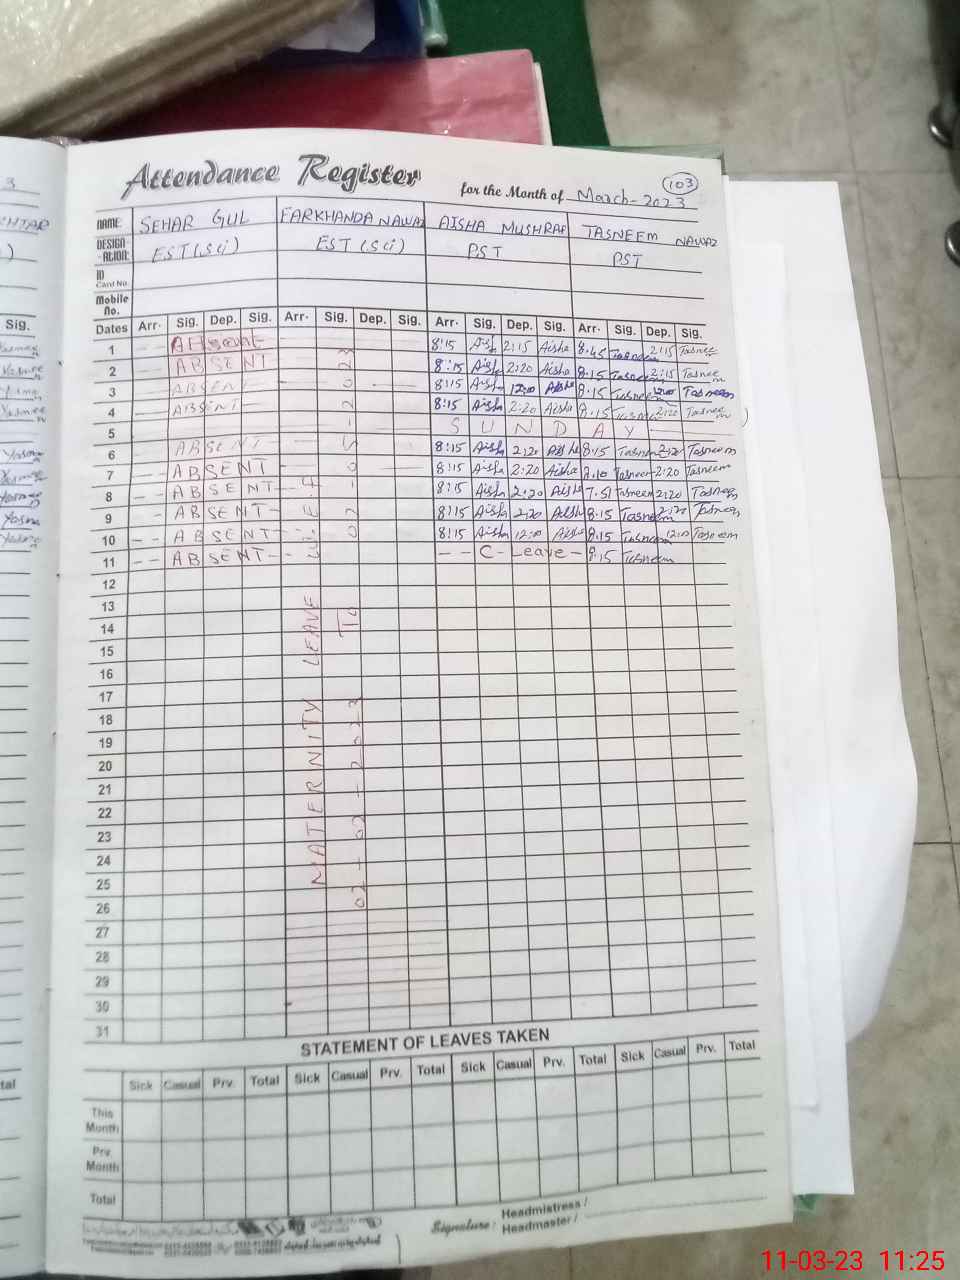 Attendance Register for the Month of March-2023 103
NAME: SEHAR GUL FARKHANDA NAWAZ AISHA MUSHRAF TASNEEM NAWAZ
DESIGN-ATION: EST (Sci) EST (Sci) PST PST
ID Card No.
Mobile No.
Dates Arr. Sig. Dep. Sig. Arr. Sig. Dep. Sig. Arr. Sig. Dep. Sig. Arr. Sig. Dep. Sig.
1 -- Absent 8:15 Aisha 2:15 Aisha 8.45 Tasneem 2:15 Tasneem
2 -- ABSENT 8:15 Aisha 2:20 Aisha 8.15 Tasneem 2:15 Tasneem
3 -- ABSENT 8:15 Aisha 12:00 Aisha 8.15 Tasneem 12:00 Tasneem
4 -- ABSENT 8:15 Aisha 2:20 Aisha 8.15 Tasneem 2:20 Tasneem
5 SUNDAY
6 ABSENT 8:15 Aisha 2:20 Aisha 8:15 Tasneem 2:20 Tasneem
7 -- ABSENT 8:15 Aisha 2:20 Aisha 8.10 Tasneem 2:20 Tasneem
8 -- ABSENT 8:15 Aisha 2:20 Aisha 7.51 Tasneem 2:20 Tasneem
9 -- ABSENT 8:15 Aisha 2:20 Aisha 8.15 Tasneem 2:20 Tasneem
10 -- ABSENT 8:15 Aisha 12:00 Aisha 8.15 Tasneem 12:00 Tasneem
11 -- ABSENT -- -- C-Leave- 8.15 Tasneem
12
13
14
15
16
17
18
19
20
21
22
23
24
25
26
27
28
29
30
31
MATERNITY LEAVE
02-02-2023 TO
STATEMENT OF LEAVES TAKEN
Sick Casual Prv. Total Sick Casual Prv. Total Sick Casual Prv. Total Sick Casual Prv. Total
This Month
Prv. Month
Total
Signature: Headmistress / Headmaster /
11-03-23 11:25